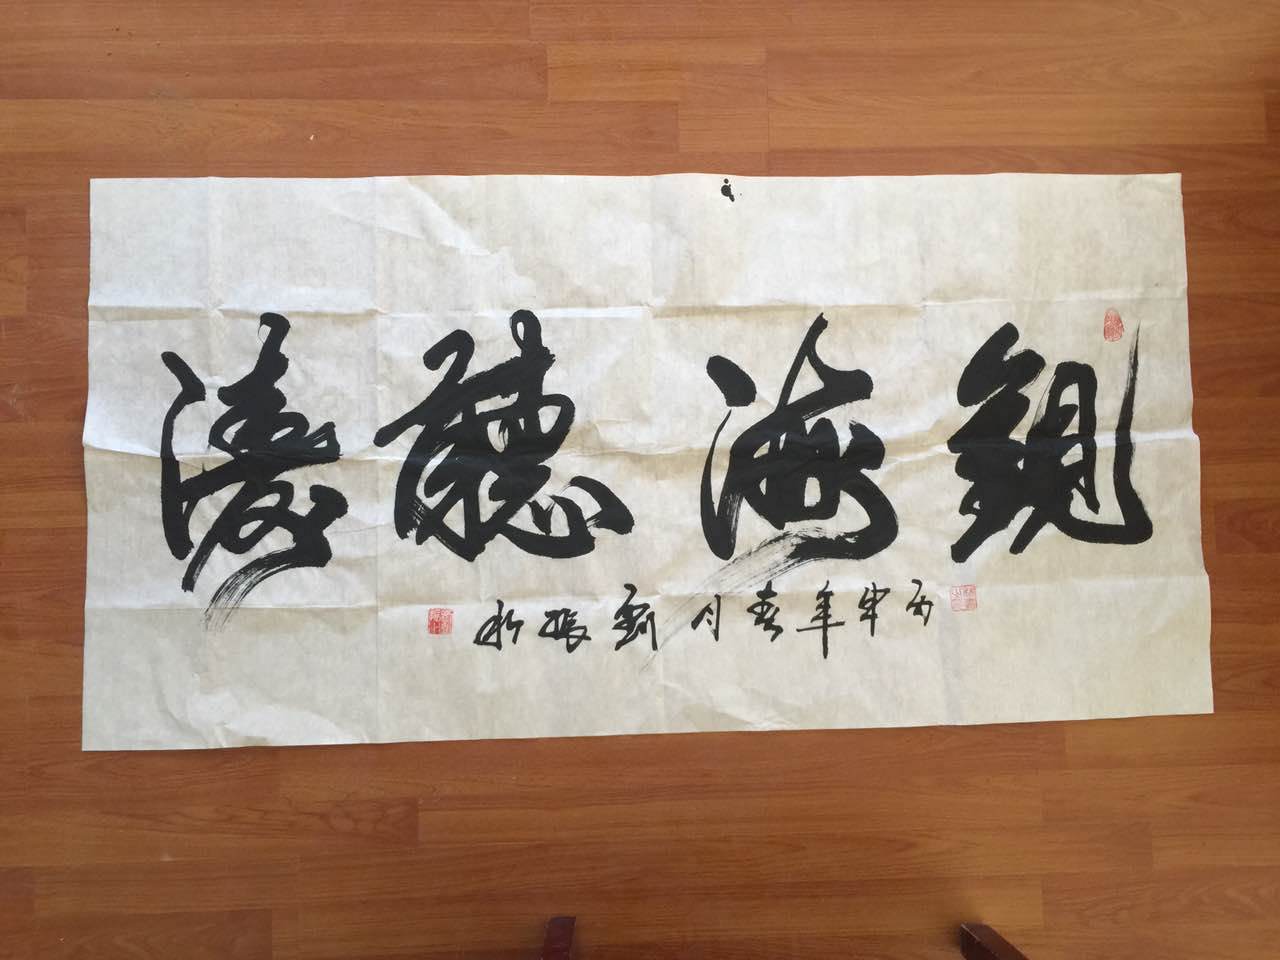 觀海聽濤
丙申年春月劉振